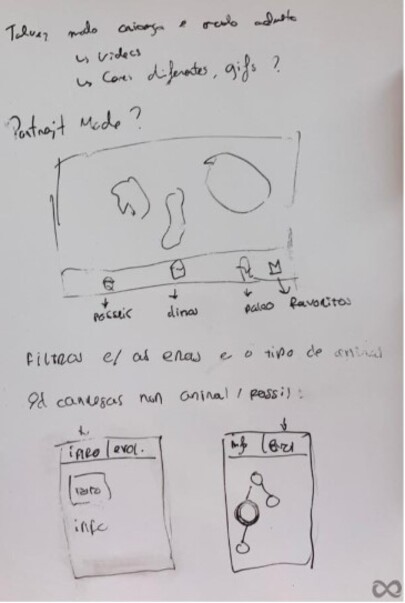 Talvez modo criança e modo adulto
↳ videos
↳ Cores diferentes, gifs ?
Portrait Mode ?
fossic
dinos
paleo
favoritos
Filtros c/ as eras e o tipo de animal
Qd carregas num animal / fossil :
info | evol.
foto
info
info | evol